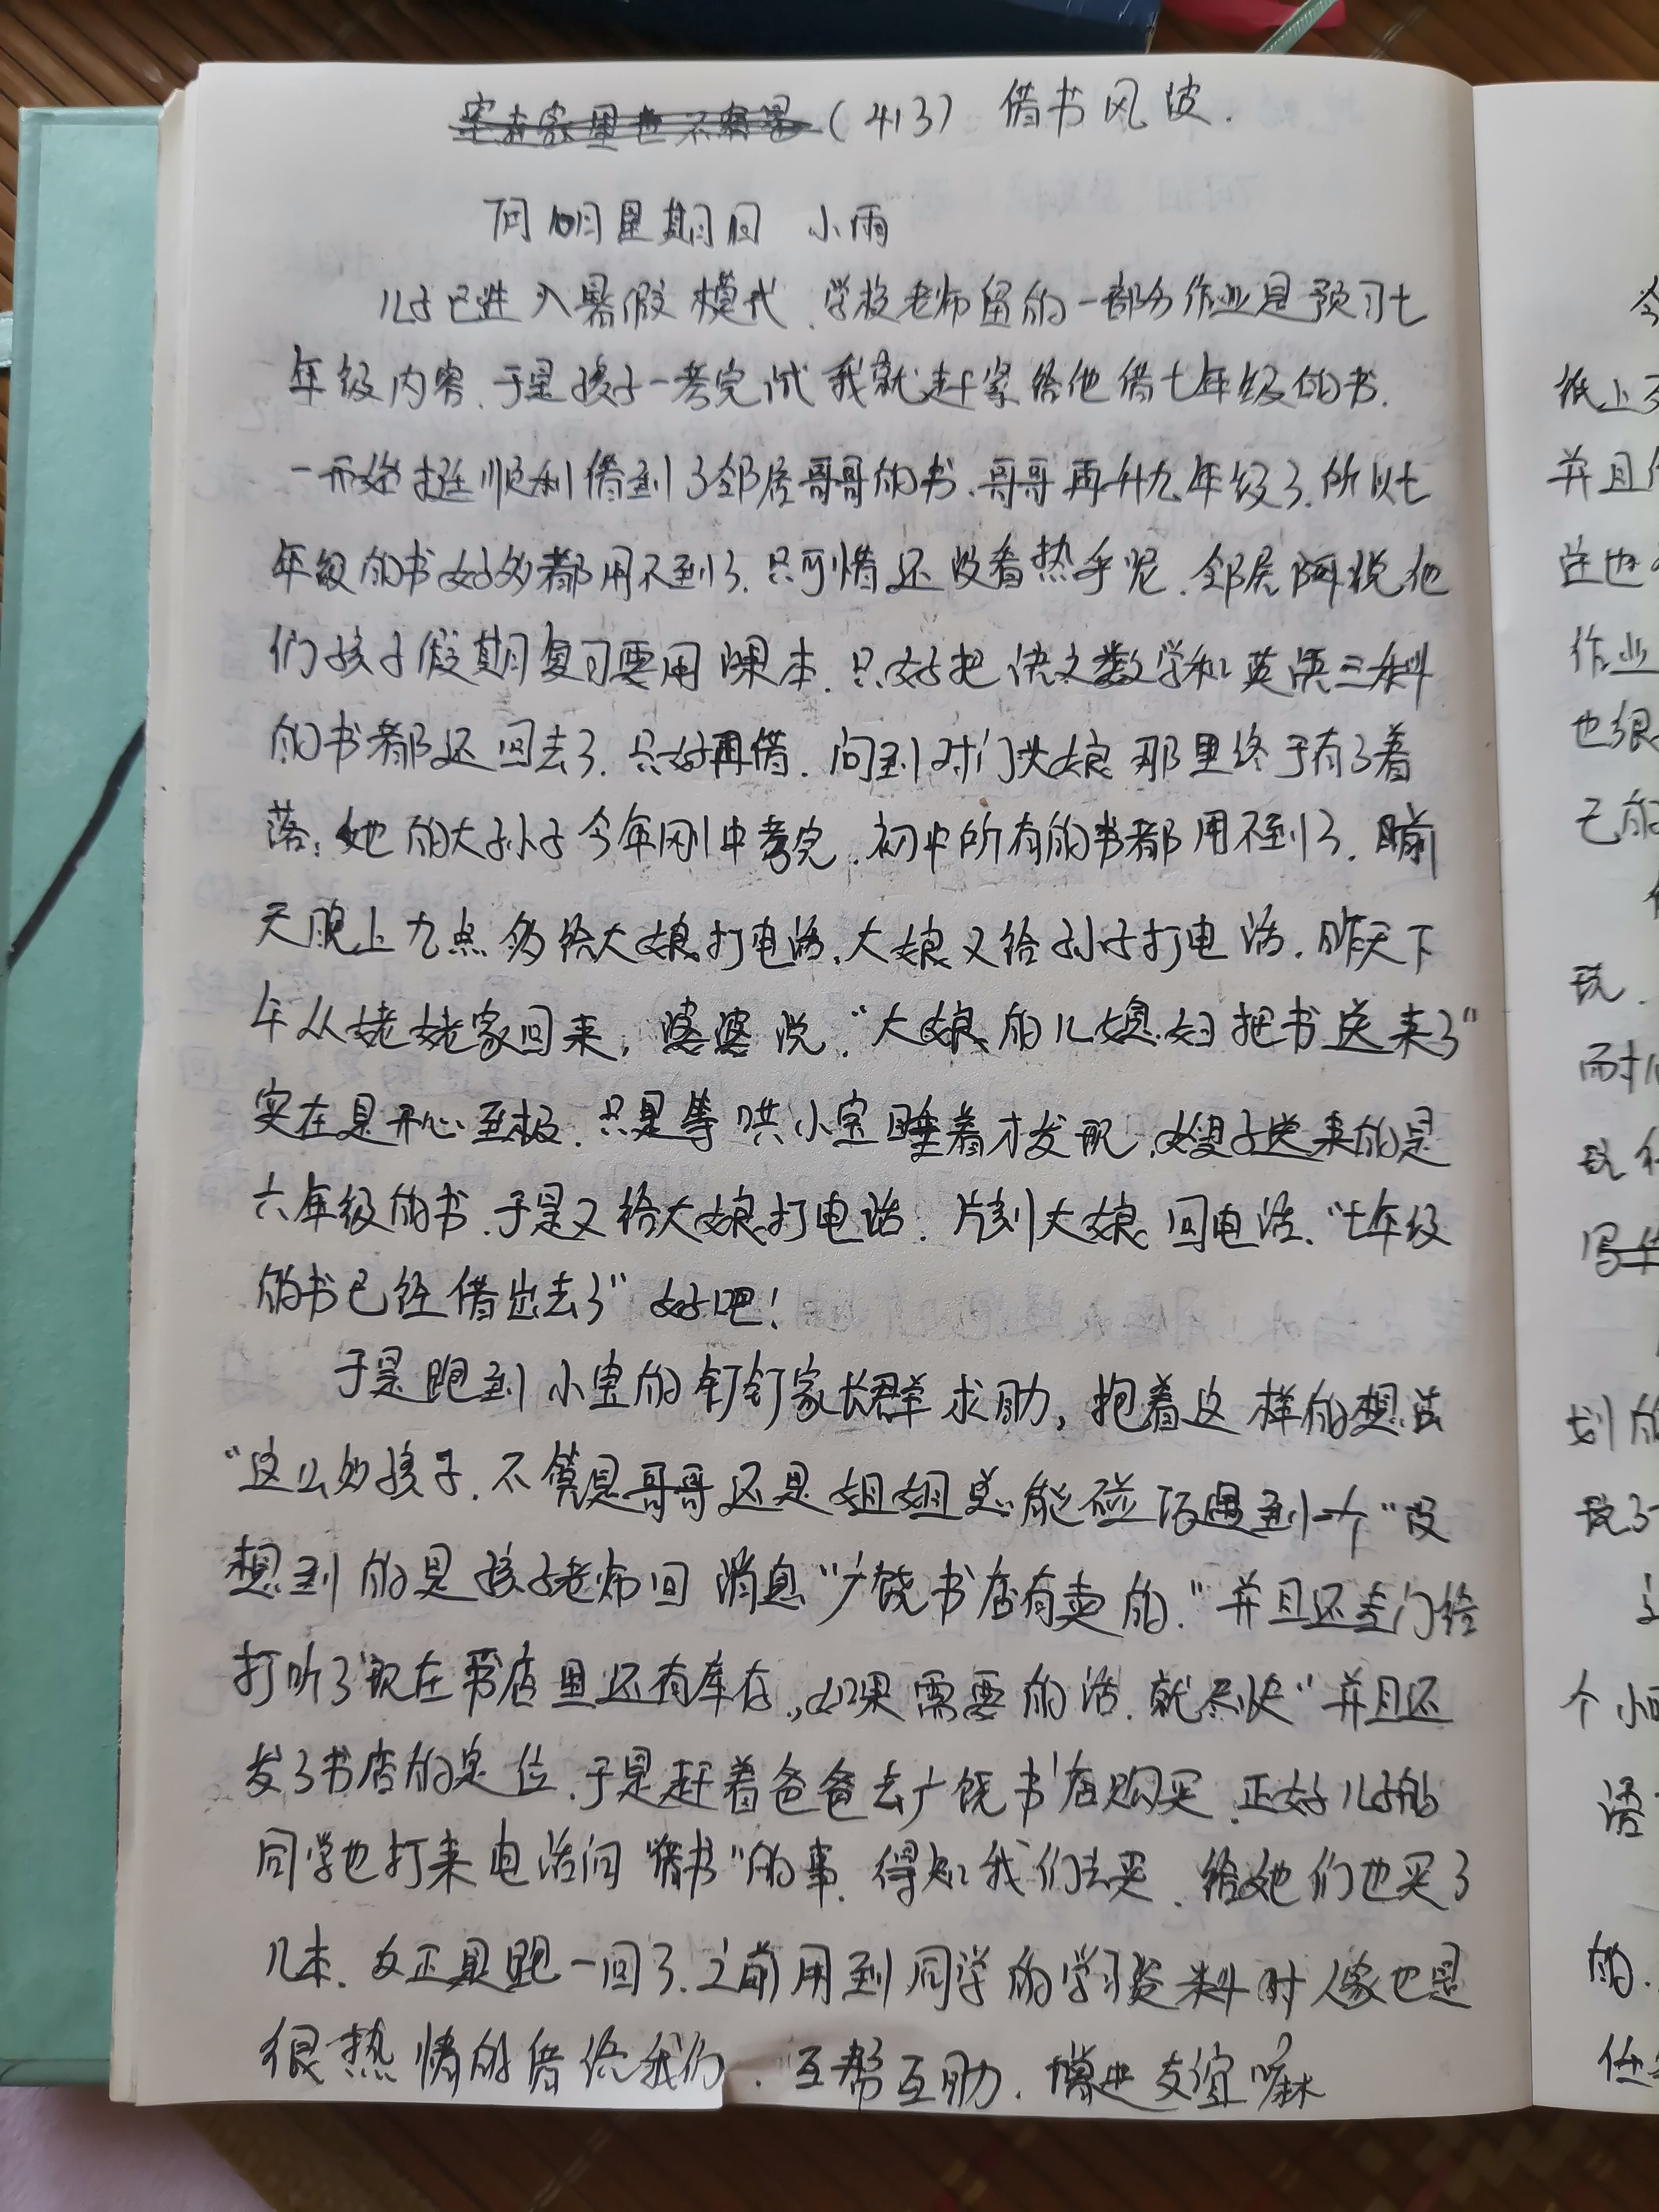 (413) 借书风波.
7月10日星期日 小雨
儿子已进入暑假模式.学校老师留的一部分作业是预习七
年级内容.于是孩子一考完试我就赶紧给他借七年级的书.
一开始挺顺利借到了邻居哥哥的书.哥哥再升九年级了.所以七
年级的书好多都用不到了.只可惜还没看热乎呢.邻居阿说他
们孩子假期复习要用课本.只好把语文数学和英语三科
的书都还回去了.只好再借.问到对门大娘那里终于有了着
落:她的大孙子今年刚中考完.初中所有的书都用不到了.前
天晚上九点多给大娘打电话.大娘又给孙子打电话.昨天下
午从姥姥家回来,婆婆说."大娘的儿媳妇把书送来了"
实在是开心至极.只是等哄小宝睡着才发现.嫂子送来的是
六年级的书.于是又给大娘打电话.片刻大娘回电话."七年级
的书已经借出去了"好吧!
于是跑到小宝的钉钉家长群求助,抱着这样的想法
"这么多孩子.不管是哥哥还是姐姐总能碰巧遇到一个"没
想到的是孩子老师回消息"广饶书店有卖的."并且还专门给
打听了"现在书店里还有库存.,如果需要的话.就尽快"并且还
发了书店的定位.于是赶着爸爸去广饶书店购买.正好儿子的
同学也打来电话问"借书"的事.得知我们去买.给她们也买了
几本.反正是跑一回了.之前用到同学的学习资料时人家也是
很热情的借给我们.互帮互助.增进友谊嘛
个小
语
的.